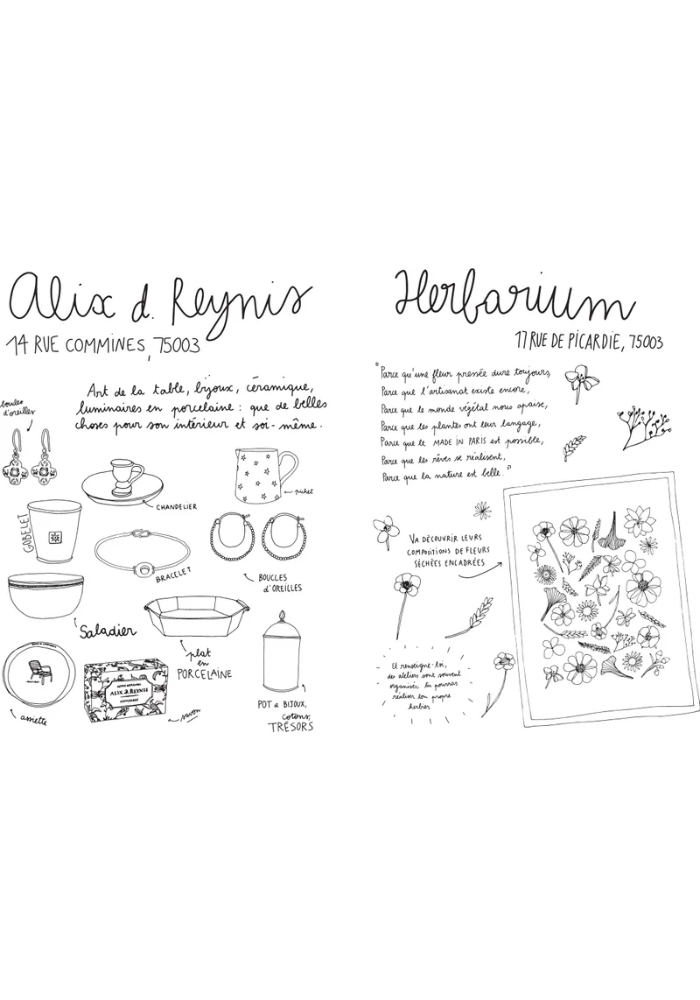 Alix d. Reynis
14 RUE COMMINES, 75003
Art de la table, bijoux, céramique,
luminaires en porcelaine : que de belles
choses pour son intérieur et soi-même.
boucles
d'oreilles
CHANDELIER
pichet
GOBELET
BRACELET
BOUCLES
d'OREILLES
Saladier
plat
en
PORCELAINE
assiette
ALIX D. REYNIS
savon
POT à BIJOUX,
cotons,
TRÉSORS
Herbarium
17 RUE DE PICARDIE, 75003
"Parce qu'une fleur pressée dure toujours,
Parce que l'artisanat existe encore,
Parce que le monde végétal nous apaise,
Parce que les plantes ont leur langage,
Parce que le MADE IN PARIS est possible,
Parce que les rêves se réalisent,
Parce que la nature est belle."
VA DÉCOUVRIR LEURS
COMPOSITIONS DE FLEURS
SÉCHÉES ENCADRÉES
Et renseigne-toi,
des ateliers sont souvent
organisés. Tu pourras
réaliser ton propre
herbier